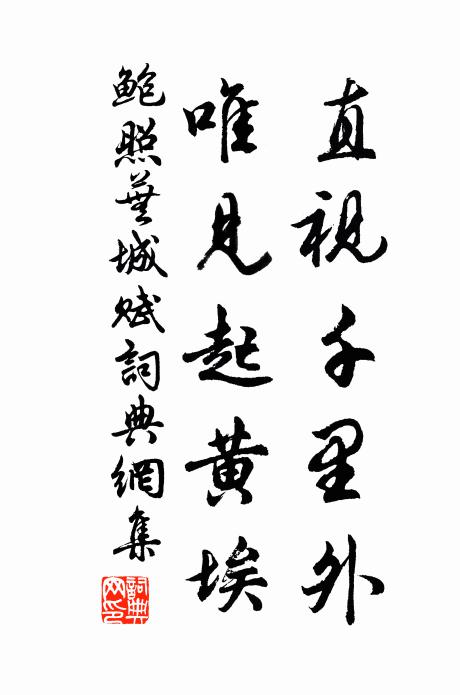 直視千里外
唯見起黄埃
鮑照蕪城賦詞典網集
詞典
网印